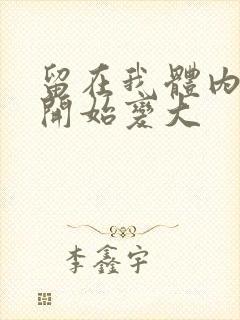 留在我體內
開始變大
李鑫宇